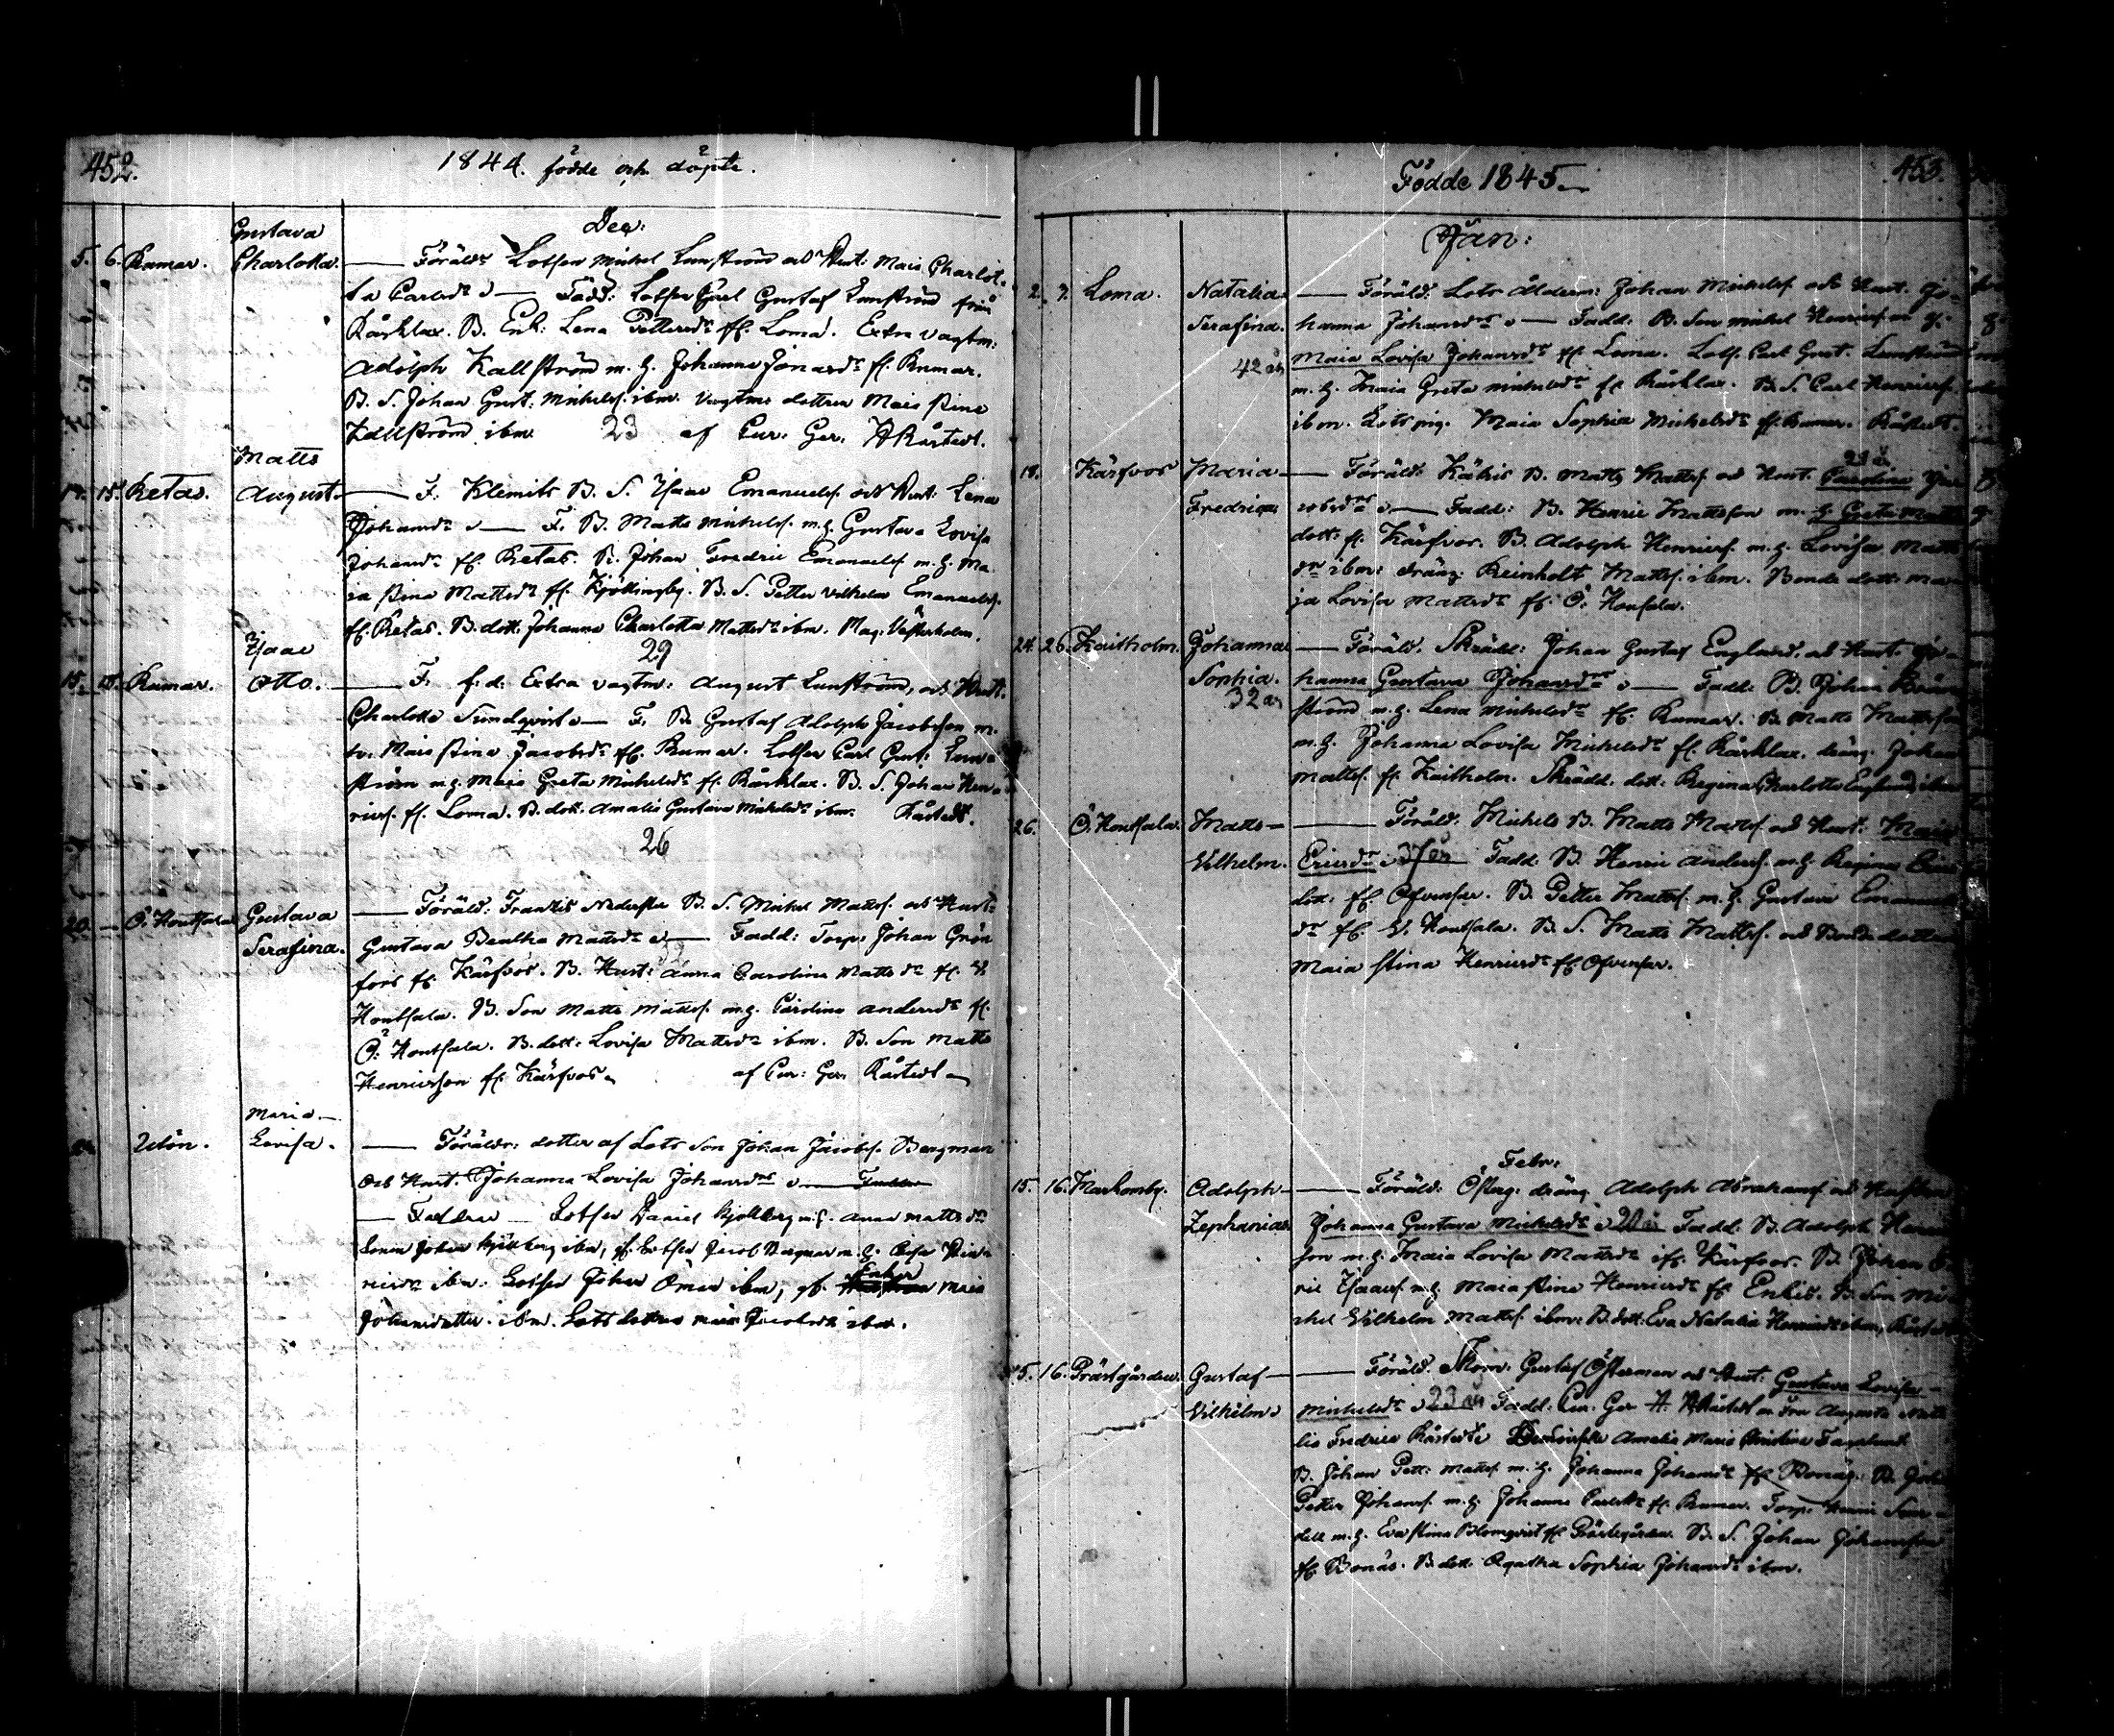 452.
1844. födde och döpte.
Dec:
Gustava
5. 6. Rumar. Charlotta. — Föräldr Lotsen Michel Lunström och Hust: Maia Charlot-
ta Carlsdr — Fadd: Lotsen Carl Gustaf Lunström från
Kårklax. B. Enk: Lena Pettersdr fr. Loma. Extra vagtm:
Adolph Kallström m. h. Johanna Jonasdr fr. Rumar.
B. S. Johan Gust: Michelss. ibm. Vagtms dottren Maia Stina
Kallström ibm. 23 af Cur: Ger. Kåstedt.
Matts
15. Retas. August. — F. Klemits B. S. Isaac Emanuelss. och Hust: Lena
Johansdr — F. B. Matts Michelss. m. h. Gustava Lovisa
Johansdr fr. Retas. B. Johan Fredric Emanuelss. m. h. Ma-
ia Stina Mattsdr fr. B. S. Petter Vilhelm Emanuelss.
fr. Retas. B. dott. Johanna Charlotta Mattsdr ibm. Mag. Vesterholm.
Isaac 29
15. 18. Rumar. Otto. — F. f. d. Extra vagtm: August Lunström, och Hust.
Charlotta Sundqvist — F. B. Gustaf Adolph Jacobsson m.
h. Maia Stina Jacobsdr fr. Rumar. Lotsen Carl Gust: Lun-
ström m. h. Maia Greta Michelsdr fr. Kårklax. B. S. Johan Hen-
ricss. fr. Loma. B. dott. Amalia Gustava Michelsdr ibm. Kåstedt.
26
20. — Ö. Hontsala Gustava — Föräld: Frantzis Nederste B. S. Michel Mattss. och Hust:
Serafina. Gustava Beatha Mattsdr — Fadd: Torp: Johan Grön-
fors fr. Kärfvos. B. Hust: Anna Carolina Mattsdr fr.
Hontsala. B. Son Matts Mattss. m. h. Carolina Andersdr fr.
Ö. Hontsala. B. dott: Lovisa Mattsdr ibm. B. Son Matts
Henricsson fr. Kärfvos. af Cur: Ger. Kåstedt
Maria
Utön. Lovisa. — Föräldr: dotter af Lots Son Johan Jacobss. Bergman
och Hust. Johanna Lovisa Johansdr —
— Faddrar — Lotsen Daniel m. h. Anna Mattsdr
Sonen Johan ibm, Lotsen Jacob m. h. Hen-
ricsdr ibm: Lotsen Johan Öman ibm, Enkan Maia
Johansdotter ibm. Lots dottren Maia Jacobsdr ibm.
453.
Födde 1845.
Jan:
2. 7. Loma. Natalia — Föräld: Lots Ålderm: Johan Michelss. och Hust. Jo-
Serafina. hanna Johansdr — Fadd: B. Son Michel Henricsson
42 år Maia Lovisa Johansdr fr. Loma. Lots. Carl Gust. Lunström
m. h. Maia Greta Michelsdr fr. Kårklax. B. S. Carl Henricss.
ibm. Lots pig. Maia Sophia Michelsdr fr. Rumar. Kåstedt.
18. Kärfvos Maria — Föräld: Käkis B. Matts Mattss. och Hust. Carolina Ja-
Fredrica cobsdr — Fadd: B. Henric Mattsson m. h. Greta Matts
dott: fr. Kärfvos. B. Adolph Henricss. m. h. Lovisa Matts
dr ibm: dräng Reinholt Mattss. ibm. Bonde dott: Ma-
ja Lovisa Mattsdr fr. Ö. Hontsala.
24. 26. Kaitholm. Johanna — Föräld. Skrädd: Johan Gustaf Englund. och Hust. Jo-
Sophia. hanna Gustava Johansdr — Fadd: B. Johan
32 år ström m. h. Lena Michelsdr fr. Rumar. B. Matts Mattsson
m. h. Johanna Lovisa Michelsdr fr. Kårklax. dräng Johan
Mattss. fr. Kaitholm. Skrädd. dott. Regina Charlotta Englund, ibm
26. Ö. Hontsala. Matts — Föräld. Michels B. Matts Mattss. och Hust: Maia
Vilhelm. Ericsdr 37 år Fadd. B. Henric Anderss. m. h. Regina
dott: fr. Ofvensor. B. Petter Mattss. m. h. Gustava Emanuels
dr fr. Hontsala. B. S. Matts Mattss. och Bonde dottren
Maia Stina Henricsdr fr. Ofvensor.
Febr:
15. 16. Markomby. Adolph — Föräld: dräng Adolph Abrahamss. och Hustrun
Zephanias Johanna Gustava Michelsdr Fadd. B. Adolph
son m. h. Maia Lovisa Mattsdr fr. Kärfvos. B. Johan
ric Isaacss. m. h. Maia Stina Henricsdr fr. Enkis. B. Son Mi-
chel Vilhelm Mattss. ibm: B. dott: Eva Natalia Henricsdr ibm.
15. 16. Prästgården. Gustaf — Föräld. Gustaf Österman och Hust: Gustava Lovisa
Vilhelm Michelsdr 23 år Fadd. Cur. Ger. Kåstedt m. Fru Augusta
Fredrica Kåstedt Amalia Maria Christina Fagerlund.
B. Johan Pett: Mattss. m. h. Johanna Johansdr fr. Bonäs. B. Joh
Petter Johanss. m. h. Johanna Carlsdr fr. Rumar. Torp: Henric
m. h. Eva Stina Blomqvist fr. Prästgården. B. S. Johan Johansson
fr. Bonäs. B. dott. Agatha Sophia Johansdr ibm.